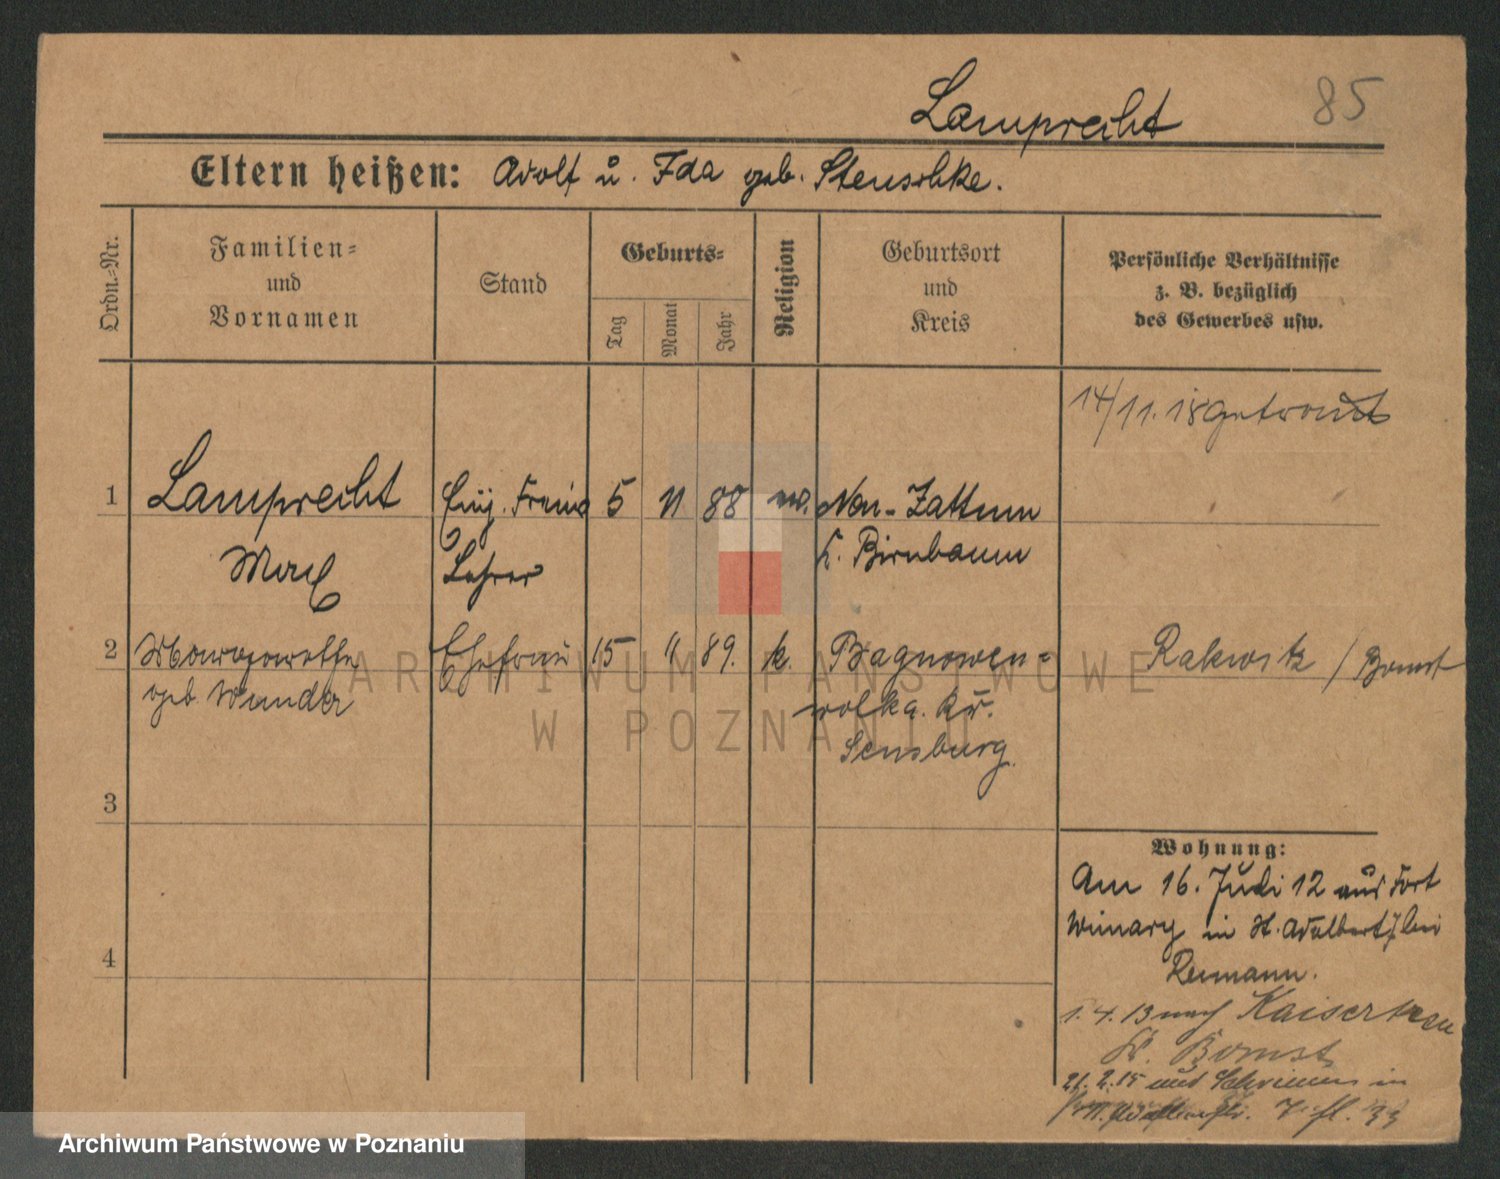 Lamprecht 85
Eltern heißen: Adolf u. Ida geb. Stenschke.
Ordn.=Nr.
Familien=
und
Vornamen
Stand
Geburts=
Tag
Monat
Jahr
Religion
Geburtsort
und
Kreis
Persönliche Verhältnisse
z. B. bezüglich
des Gewerbes usw.
14/11.18 getraut
1 Lamprecht Einj. Freiw 5 11 88 ev. Neu-Zattum
Max Lehrer K. Birnbaum
2 Ehefrau 15 11 89. k. Bagnowen=
geb Wunder wolka. Kr.
Sensburg.
Rakwitz / Bomst
3
4
Wohnung:
Am 16. Juli 12 aus Fort
Winiary in St. Adalbert 7 bei
Reimann.
1.4.13 nach
Kr. Bomst
21.2.15 aus Schrimm in
33
ARCHIWUM PAŃSTWOWE
W POZNANIU
Archiwum Państwowe w Poznaniu